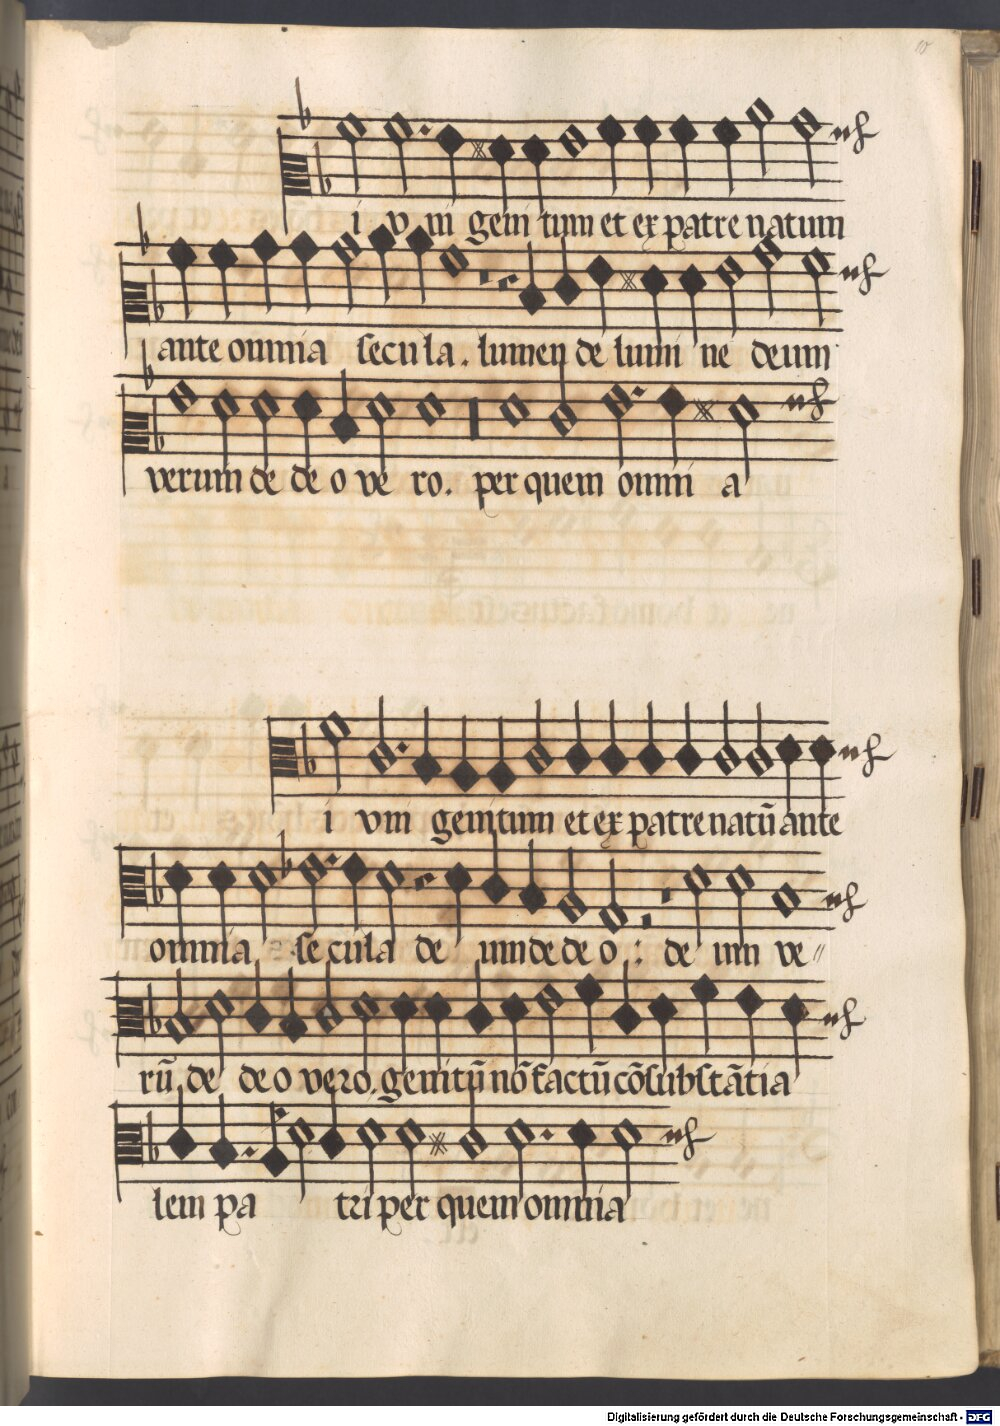 10
i v ni geni tum et ex patre natum
ante omnia secula. lumen de lumi ne deum
verum de de o ve ro. per quem omni a
i vni genitum et ex patre natū ante
omnia secula de um de de o : de um ve〃
rū de de o vero. genitū nō factū cōsubstātia
lem pa tri per quem omnia
Digitalisierung gefördert durch die Deutsche Forschungsgemeinschaft - DFG